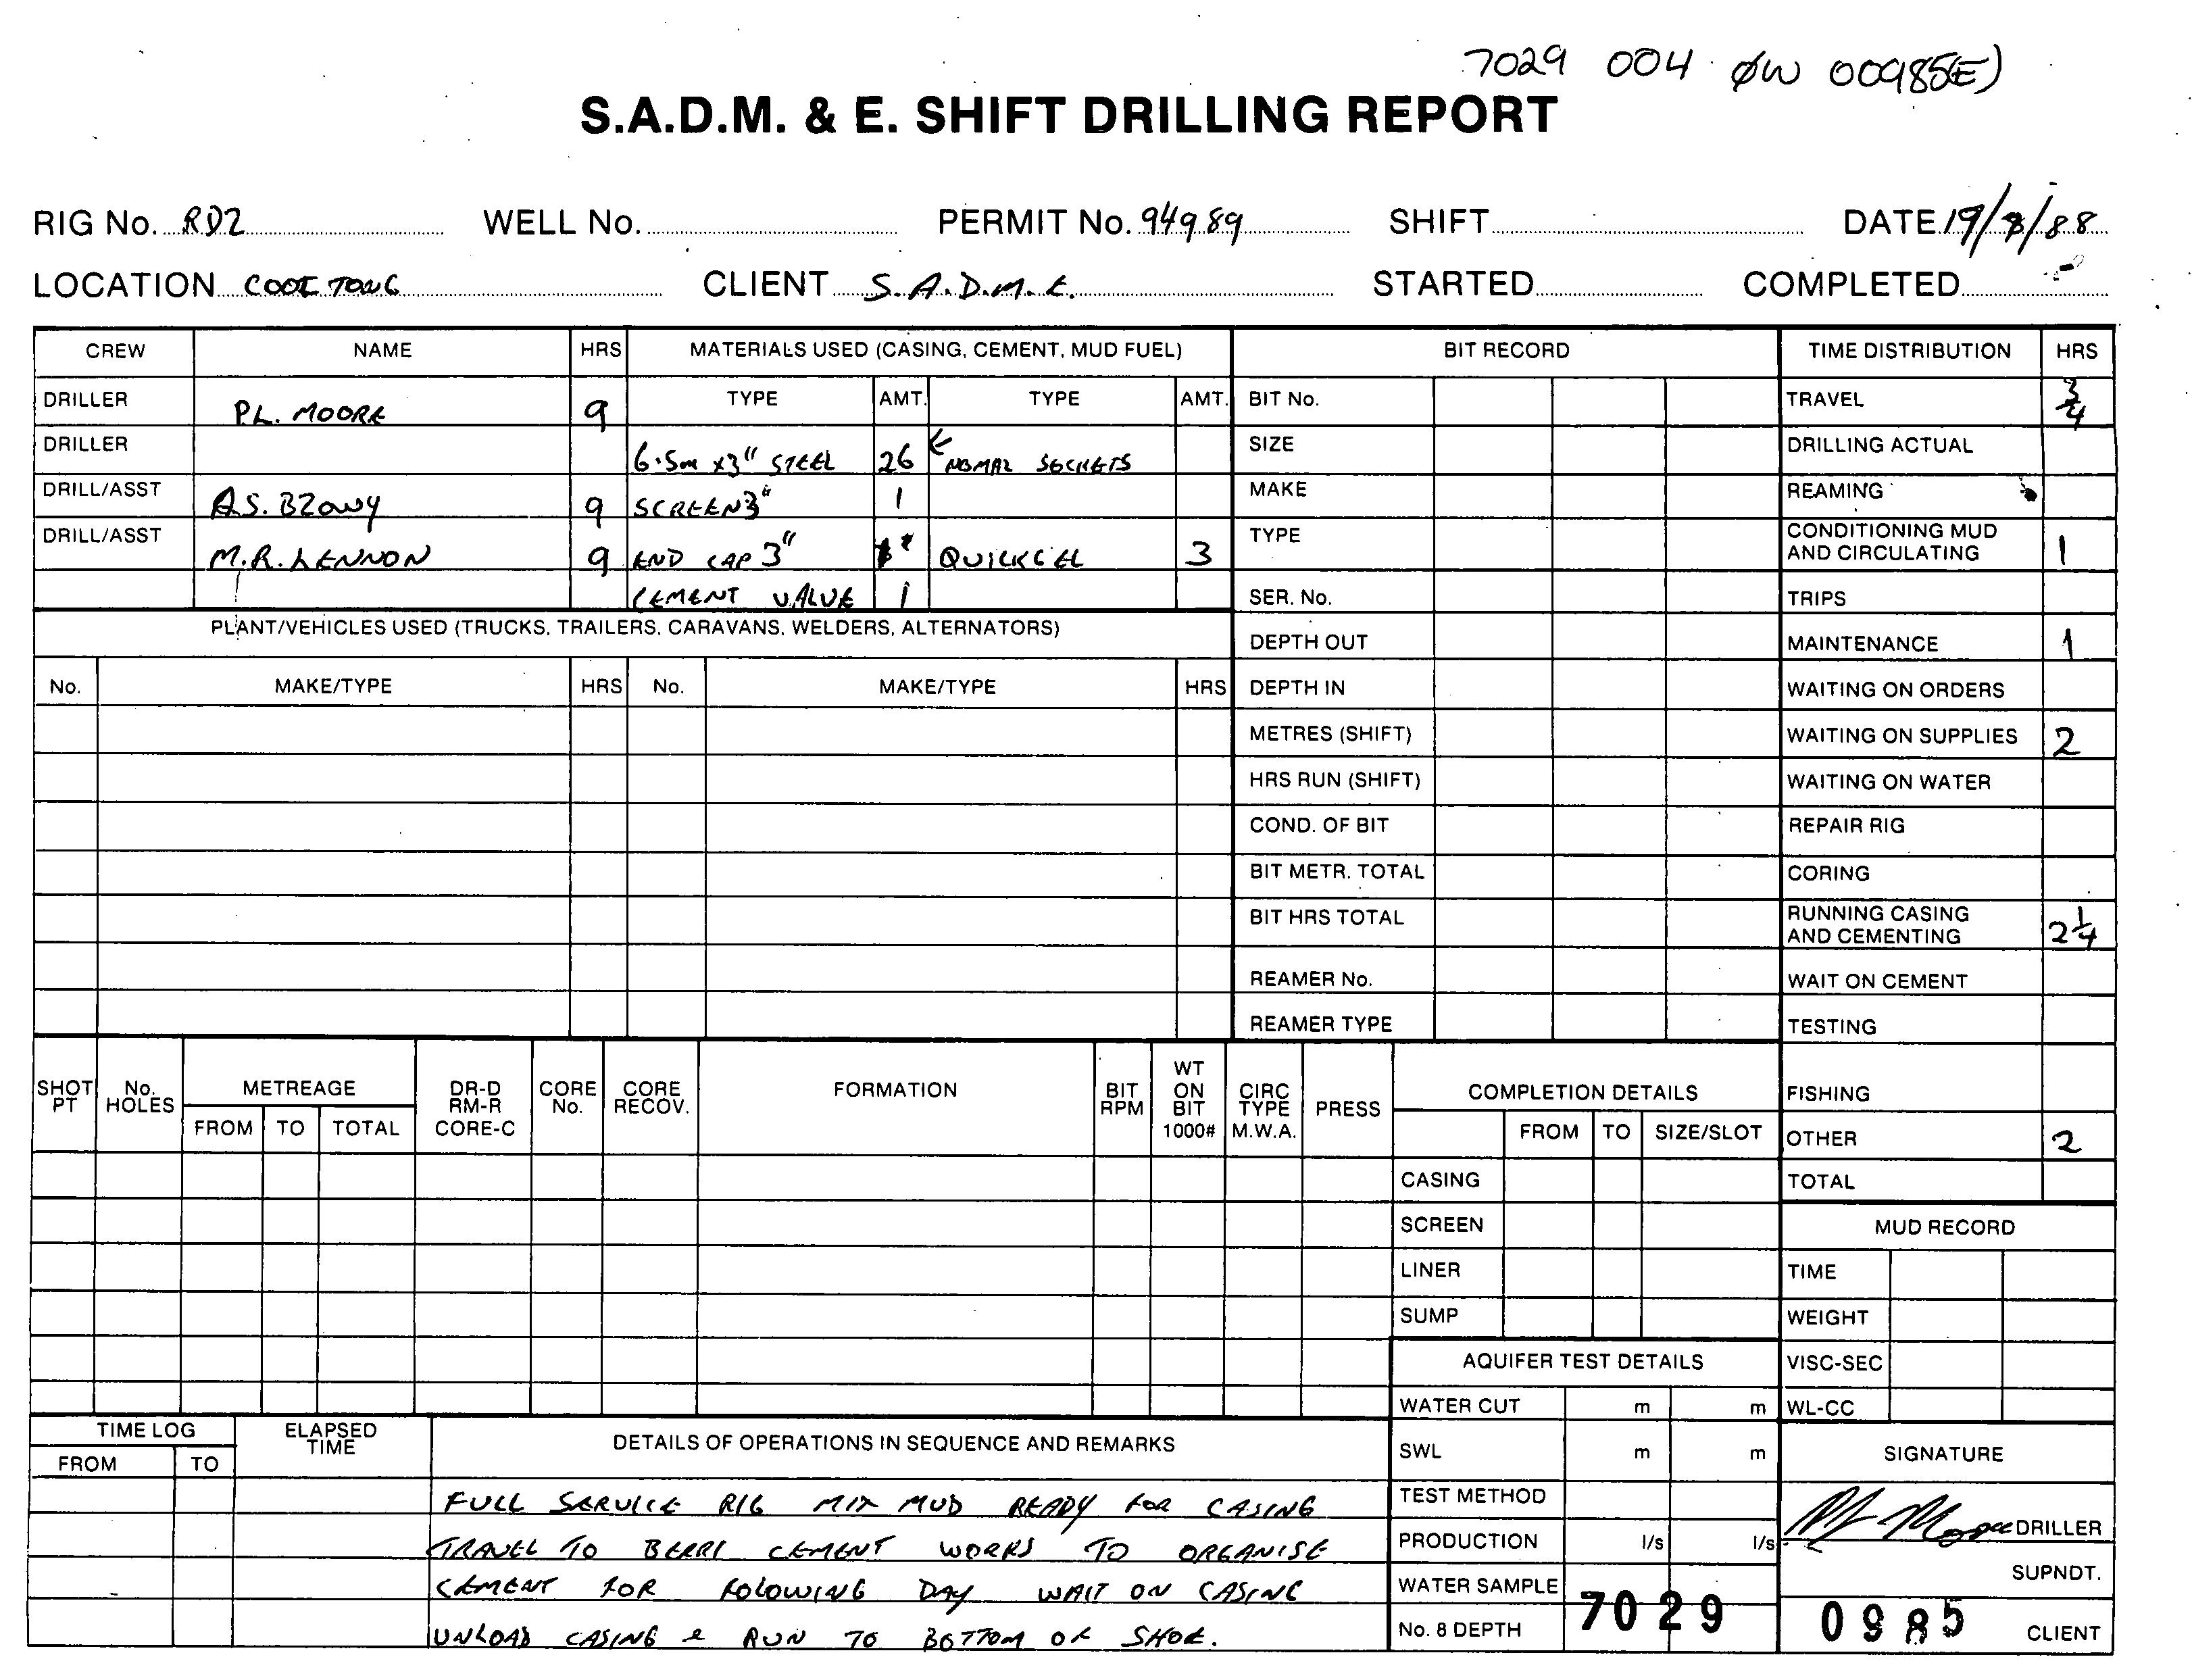 7029 004 ØW 00985(E)
S.A.D.M. & E. SHIFT DRILLING REPORT
RIG No. RD2 WELL No. PERMIT No. 94989 SHIFT DATE 19/8/88
LOCATION CLIENT S.A.D.M.E. STARTED COMPLETED
CREW NAME HRS MATERIALS USED (CASING, CEMENT, MUD FUEL) BIT RECORD TIME DISTRIBUTION HRS
DRILLER P.L. MOORE 9 TYPE AMT. TYPE AMT. BIT No. TRAVEL 3/4
DRILLER 6.5m x3" STEEL 26 SOCKETS SIZE DRILLING ACTUAL
DRILL/ASST A.S. 9 SCREEN 3" 1 MAKE REAMING
DRILL/ASST M.R. LENNON 9 END CAP 3" QUICKGEL 3 TYPE CONDITIONING MUD AND CIRCULATING 1
CEMENT VALUE 1 SER. No. TRIPS
PLANT/VEHICLES USED (TRUCKS, TRAILERS, CARAVANS, WELDERS, ALTERNATORS) DEPTH OUT MAINTENANCE 1
No. MAKE/TYPE HRS No. MAKE/TYPE HRS DEPTH IN WAITING ON ORDERS
METRES (SHIFT) WAITING ON SUPPLIES 2
HRS RUN (SHIFT) WAITING ON WATER
COND. OF BIT REPAIR RIG
BIT METR. TOTAL CORING
BIT HRS TOTAL RUNNING CASING AND CEMENTING 2 1/4
REAMER No. WAIT ON CEMENT
REAMER TYPE TESTING
SHOT PT No. HOLES METREAGE DR-D RM-R CORE-C CORE No. CORE RECOV. FORMATION BIT RPM WT ON BIT 1000# CIRC TYPE M.W.A. PRESS COMPLETION DETAILS FISHING
FROM TO TOTAL FROM TO SIZE/SLOT OTHER 2
CASING TOTAL
SCREEN MUD RECORD
LINER TIME
SUMP WEIGHT
AQUIFER TEST DETAILS VISC-SEC
WATER CUT m m WL-CC
TIME LOG ELAPSED TIME DETAILS OF OPERATIONS IN SEQUENCE AND REMARKS SWL m m SIGNATURE
FROM TO
FULL SERVICE RIG MIX MUD READY FOR CASING TEST METHOD
TRAVEL TO BERRI CEMENT WORKS TO ORGANISE PRODUCTION l/s l/s DRILLER
CEMENT FOR FOLOWING DAY WAIT ON CASING WATER SAMPLE SUPNDT.
UNLOAD CASING & RUN TO BOTTOM OF SHOE. No. 8 DEPTH 7029 0985 CLIENT